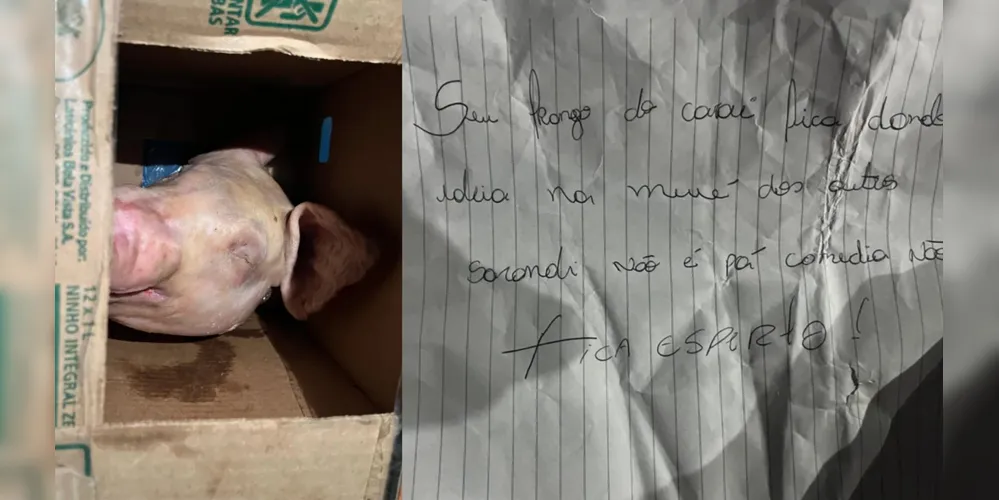 NTIAR
BAS
Produzido e Distribuído por:
Laticínios Bela Vista S.A.
12 x 1 L
NINHO INTEGRAL ZE
Seu frango do carai fica dond
ideia na
dos outros
não é pá comédia não
FICA ESPERTO!